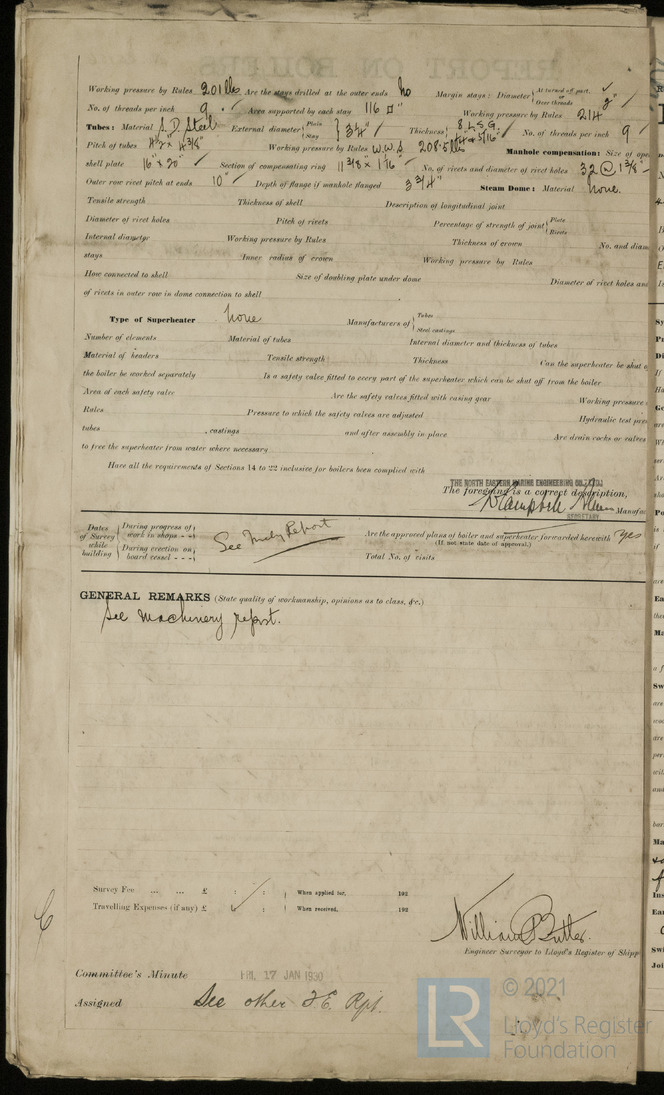 Working pressure by Rules 201 lbs Are the stays drilled at the outer ends No Margin stays: Diameter { At turned off part, ✓ or Over threads 2" ✓
No. of threads per inch 9 ✓ Area supported by each stay 116 □" Working pressure by Rules 214
Tubes: Material S.D. Steel External diameter { Plain Stay } 3¼" ✓ Thickness { 8 L.S.G. ✓ 5/16" No. of threads per inch 9 ✓
Pitch of tubes 4½" x 4⅜" Working pressure by Rules W.W.S 208.5 lbs Manhole compensation: Size of
shell plate 16" x 20" ✓ Section of compensating ring 11⅜" x 1 7/16" ✓ No. of rivets and diameter of rivet holes 32 @ 1⅜"
Outer row rivet pitch at ends 10" ✓ Depth of flange if manhole flanged 3¾" Steam Dome: Material None.
Tensile strength Thickness of shell Description of longitudinal joint
Diameter of rivet holes Pitch of rivets Percentage of strength of joint { Plate Rivets
Internal diameter Working pressure by Rules Thickness of crown No. and diam
stays Inner radius of crown Working pressure by Rules
How connected to shell Size of doubling plate under dome Diameter of rivet holes and
of rivets in outer row in dome connection to shell
Type of Superheater None Manufacturers of { Tubes Steel castings
Number of elements Material of tubes Internal diameter and thickness of tubes
Material of headers Tensile strength Thickness Can the superheater be shut
the boiler be worked separately Is a safety valve fitted to every part of the superheater which can be shut off from the boiler
Area of each safety valve Are the safety valves fitted with easing gear Working pressure
Rules Pressure to which the safety valves are adjusted Hydraulic test
tubes , castings and after assembly in place Are drain cocks or valves
to free the superheater from water where necessary
Have all the requirements of Sections 14 to 22 inclusive for boilers been complied with
THE NORTH EASTERN MARINE ENGINEERING CO., LTD.
The foregoing is a correct description,
Campbell Manufac
SECRETARY
Dates of Survey while building { During progress of work in shops - - } { During erection on board vessel - - - } See Mchy Report Are the approved plans of boiler and superheater forwarded herewith Yes
(If not state date of approval.)
Total No. of visits
GENERAL REMARKS (State quality of workmanship, opinions as to class, &c.)
See machinery report.
Survey Fee ... ... £ : : } When applied for, 192
Travelling Expenses (if any) £ : : } When received, 192
William Butler.
Engineer Surveyor to Lloyd's Register of Shipp
Committee's Minute FRI. 17 JAN 1930
Assigned See other F.E. Rpt.
LR
© 2021
Lloyd's Register
Foundation